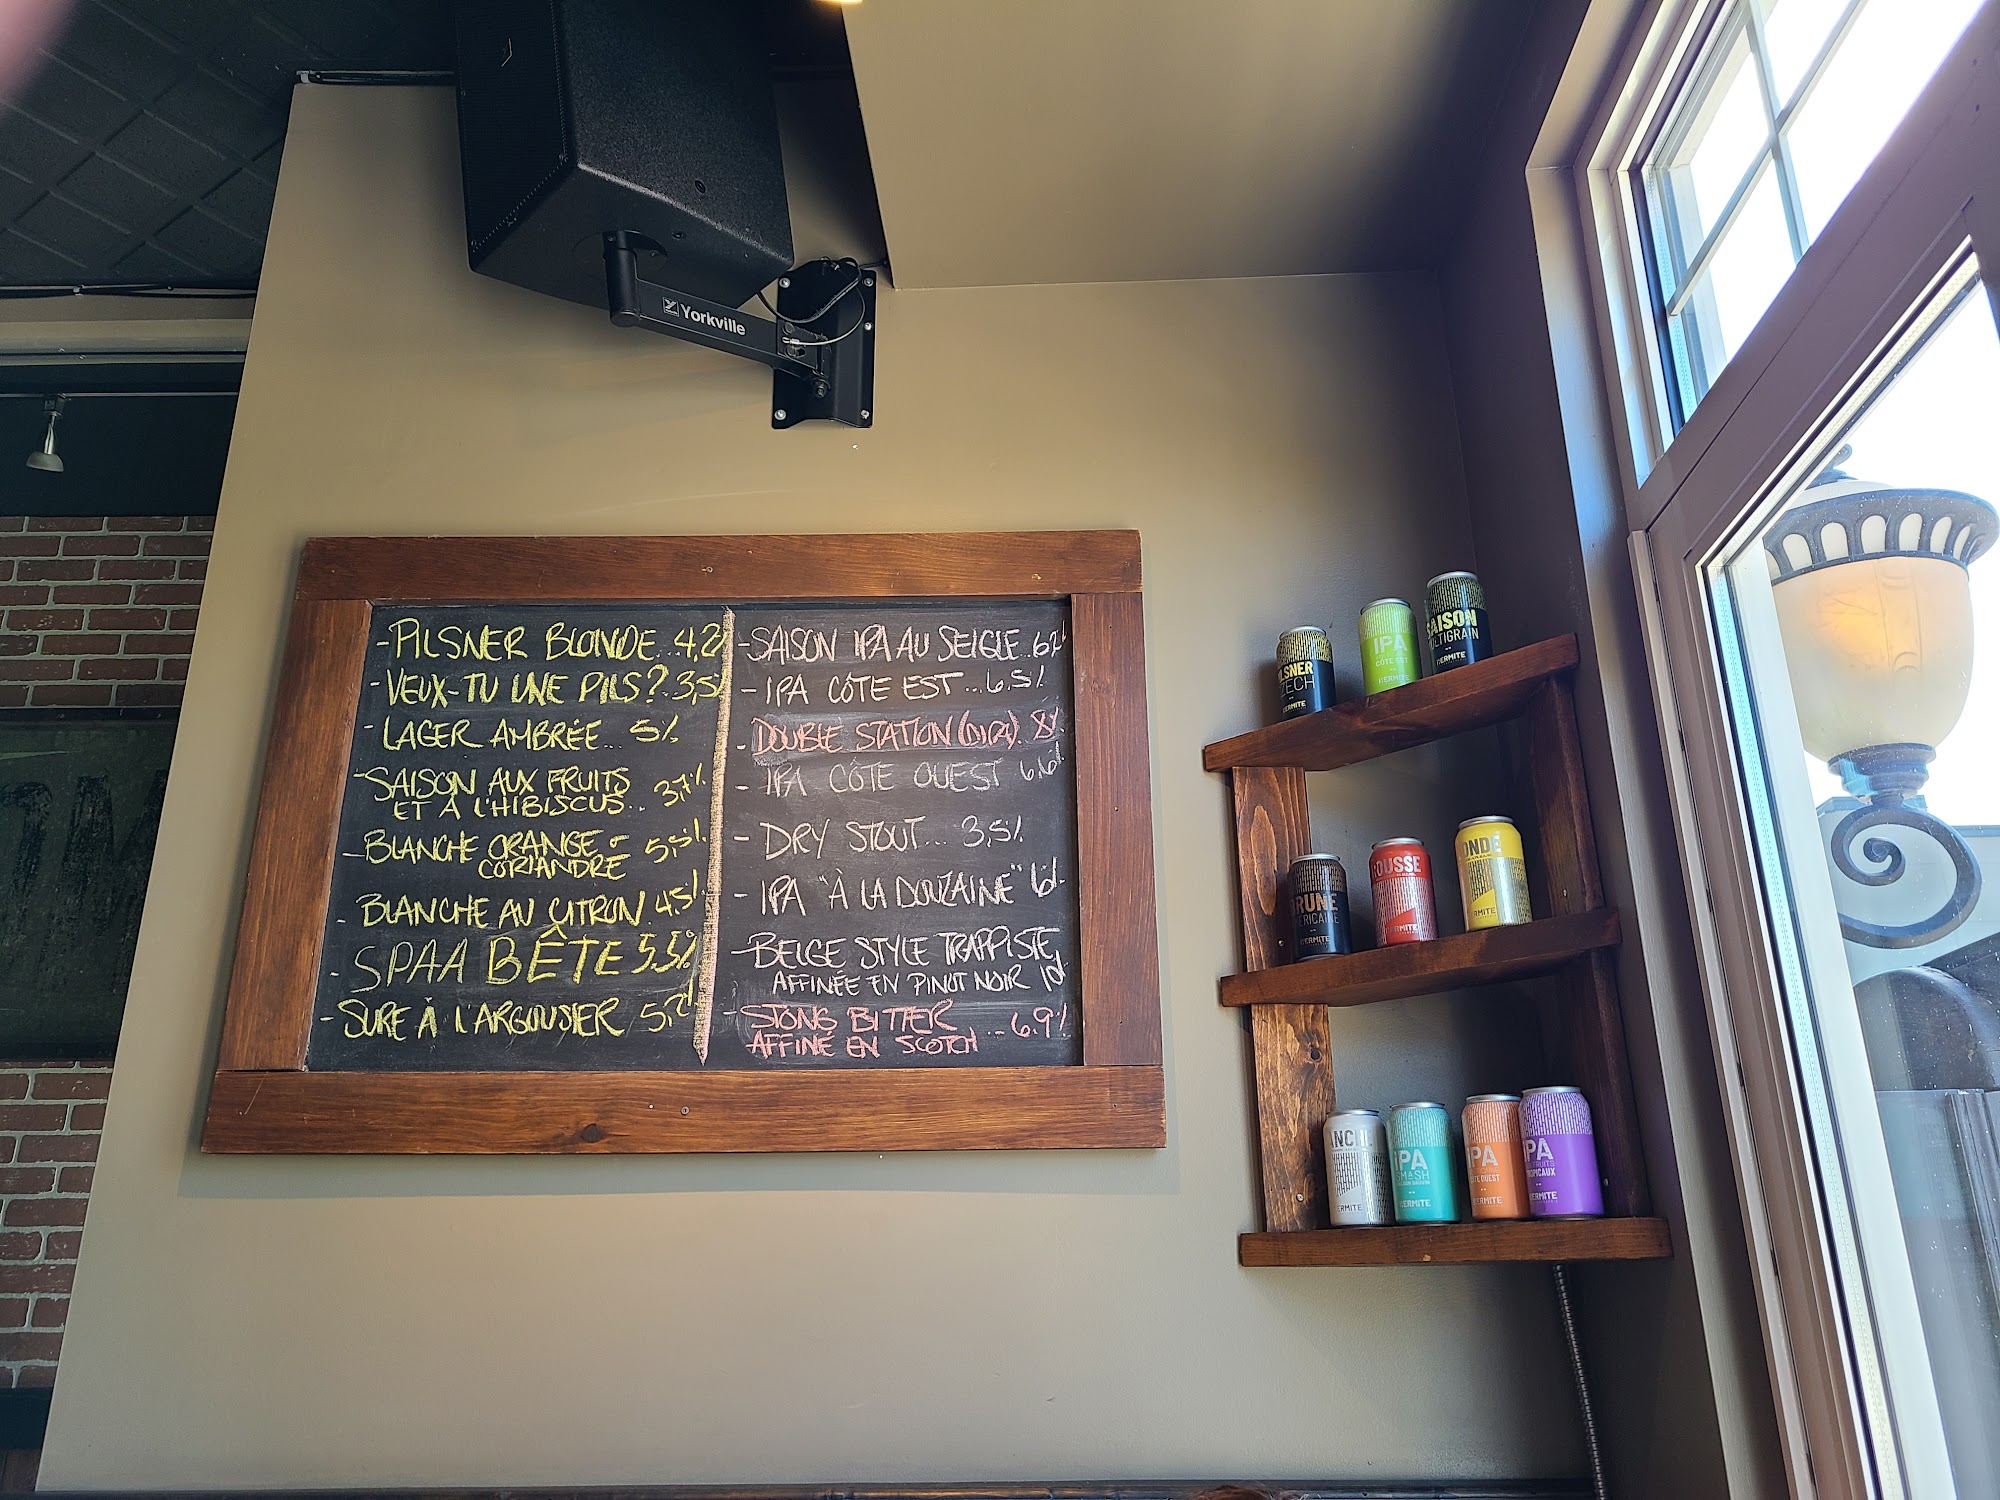 Yorkville
- PILSNER BLONDE.. 4,2%
- VEUX-TU UNE PILS?. 3,5%
- LAGER AMBRÉE... 5%
- SAISON AUX FRUITS
ET À L'HIBISCUS.. 3,7%
- BLANCHE ORANGE &
CORIANDRE 5,5%
- BLANCHE AU CITRON 4.5%
- SPAA BÊTE 5.5%
- SURE À L'ARGOUSIER 5,2%
- SAISON IPA AU SEIGLE..
- IPA CÔTE EST... 6.5%
- DOUBLE STATION (DIPA).. 8%
- IPA CÔTE OUEST 6,6%
- DRY STOUT... 3,5%
- IPA "À LA DOUZAINE" 6%
- BELGE STYLE TRAPPISTE
AFFINÉE EN PINOT NOIR 10%
- STONG BITTER ... 6.9%
AFFINÉ EN SCOTCH
LSNER
ZECH
L'HERMITE
IPA
CÔTE EST
L'HERMITE
SAISON
LTIGRAIN
L'HERMITE
RUNE
ÉRICAINE
L'HERMITE
ROUSSE
L'HERMITE
ONDE
RMITE
ANCHE
ERMITE
IPA
SMASH
L'HERMITE
IPA
ÔTE OUEST
HERMITE
IPA
FRUITS
ROPICAUX
HERMITE